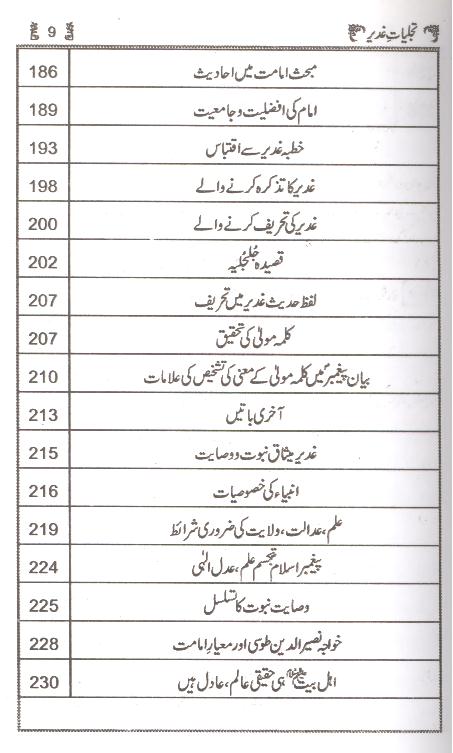 تجلیاتِ غدیر 9
مبحث امامت میں احادیث 186
امام کی افضلیت و جامعیت 189
خطبہ غدیر سے اقتباس 193
غدیر کا تذکرہ کرنے والے 198
غدیر کی تحریف کرنے والے 200
قصیدہ جُلجُلیہ 202
لفظ حدیث غدیر میں تحریف 207
کلمہ مولیٰ کی تحقیق 207
بیان پیغمبرؐ میں کلمہ مولیٰ کے معنی کی تشخیص کی علامات 210
آخری باتیں 213
غدیر میثاق نبوت و وصایت 215
انبیاء کی خصوصیات 216
علم، عدالت، ولایت کی ضروری شرائط 219
پیغمبر اسلام مجسم علم، عدل الٰہی 224
وصایت نبوت کا تسلسل 225
خواجہ نصیر الدین طوسی اور معیار امامت 228
اہل بیتؑ ہی حقیقی عالم، عادل ہیں 230